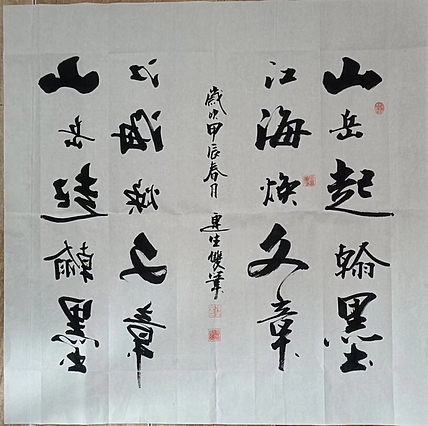 山岳起翰墨
江海焕文章
歲次甲辰春月 連生雙筆
江海焕文章
山岳起翰墨